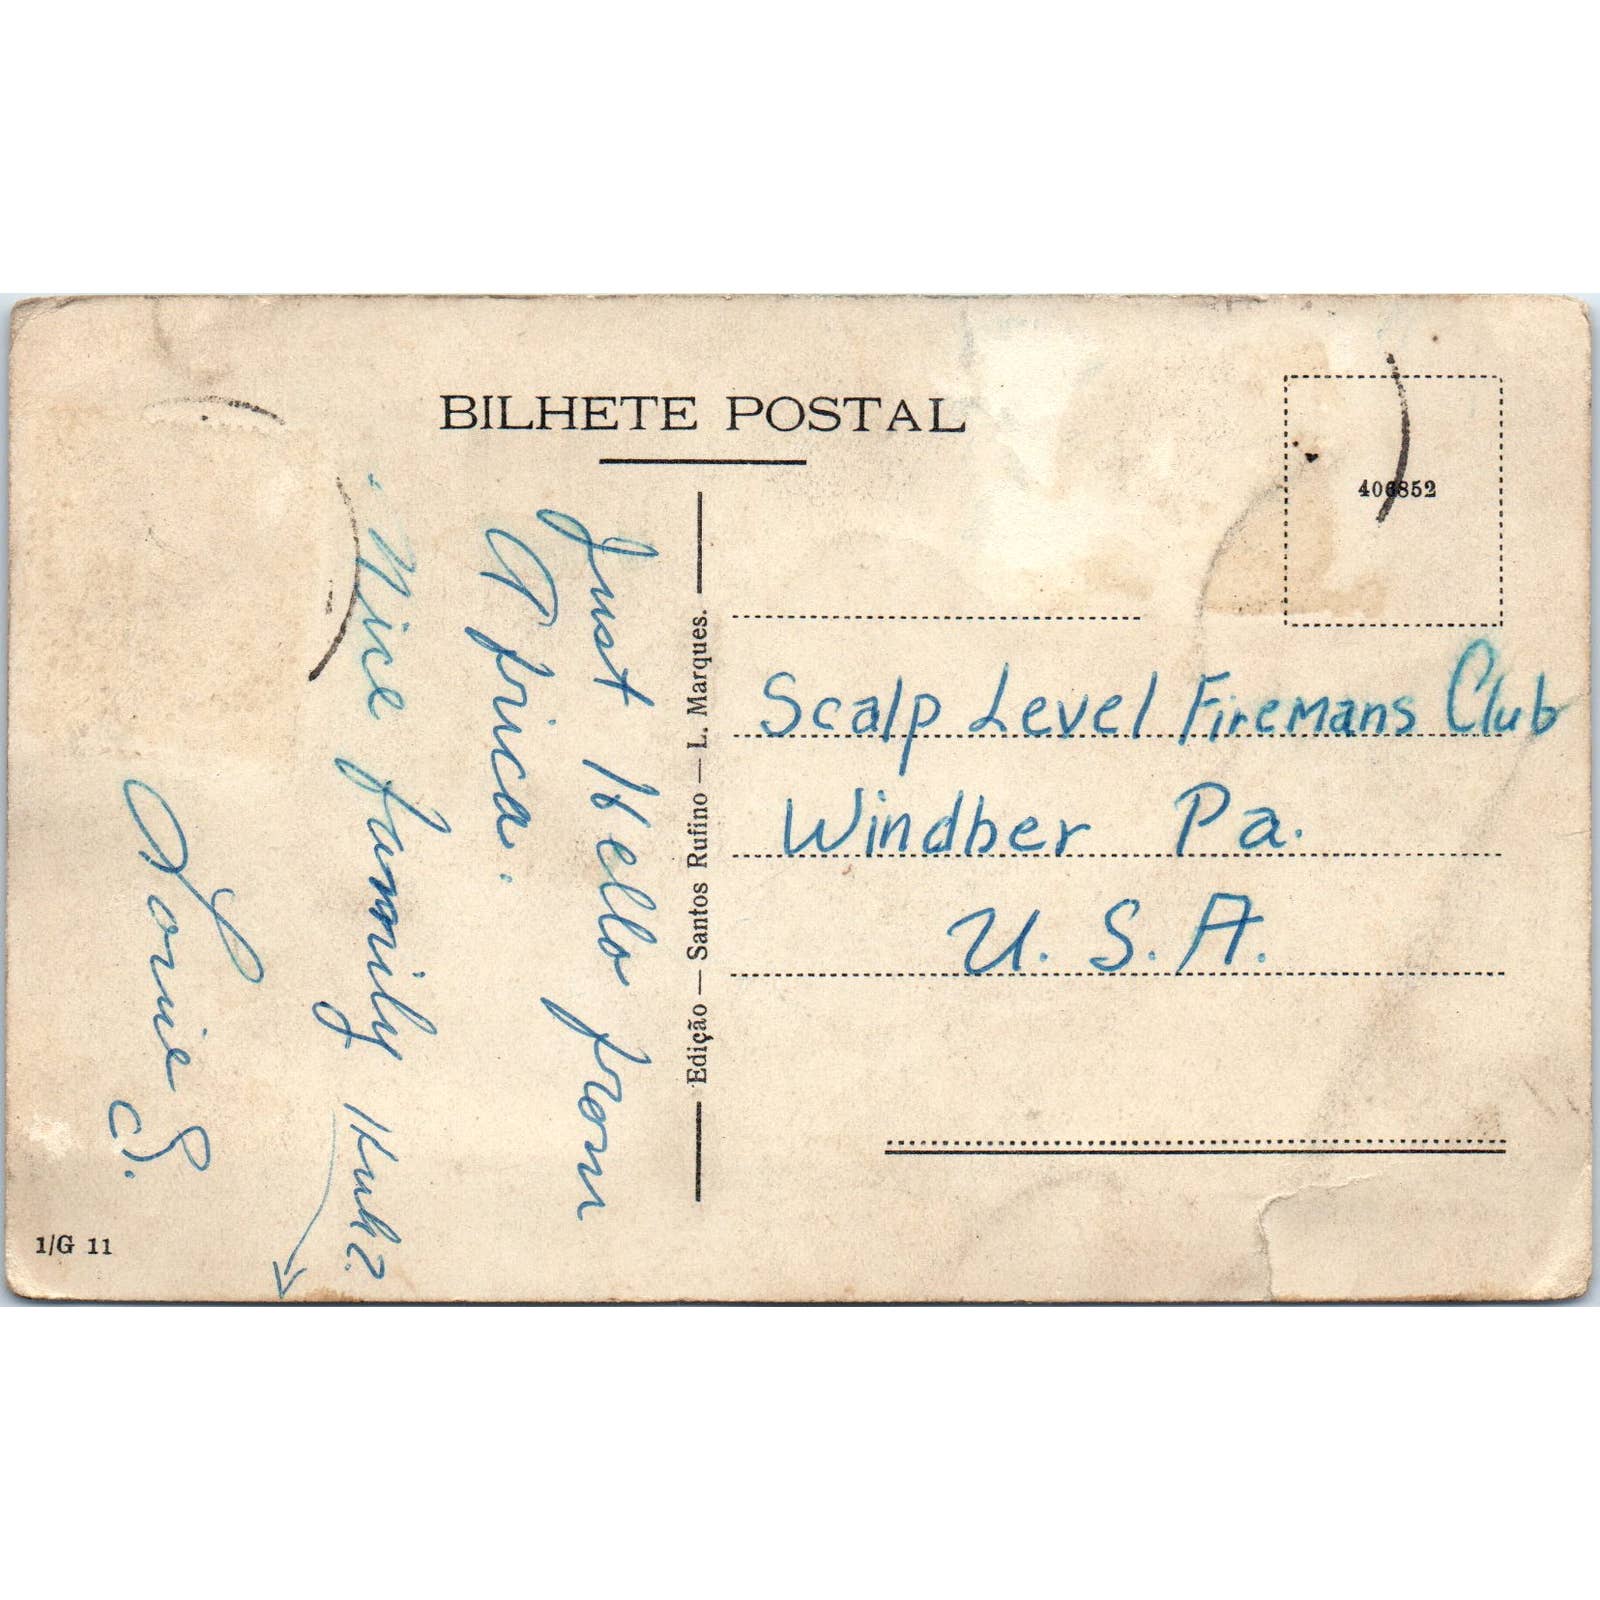 BILHETE POSTAL
406852
Just Hello from
Africa.
Nice family Huh?
Louie S.
Edição — Santos Rufino — L. Marques.
Scalp Level Firemans Club
Windber Pa.
U. S. A.
1/G 11